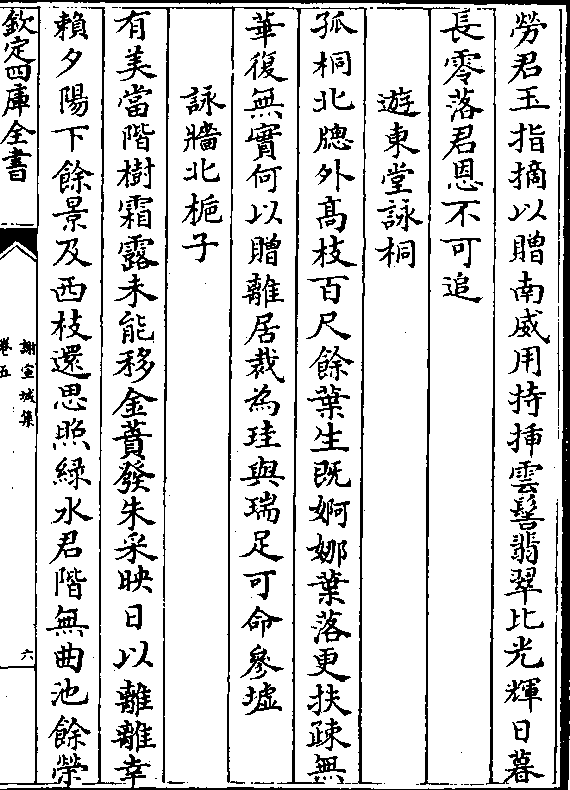 勞君玉指摘以贈南威用持揷雲髻翡翠比光輝日暮
長零落君恩不可追
遊東堂詠桐
孤桐北牕外髙枝百尺餘葉生既婀娜葉落更扶疎無
華復無實何以贈離居裁為珪與瑞足可命參墟
詠牆北梔子
有美當階樹霜露未能移金蕡發朱采映日以離離幸
賴夕陽下餘景及西枝還思照綠水君階無曲池餘榮
欽定四庫全書
謝宣城集
卷五
六